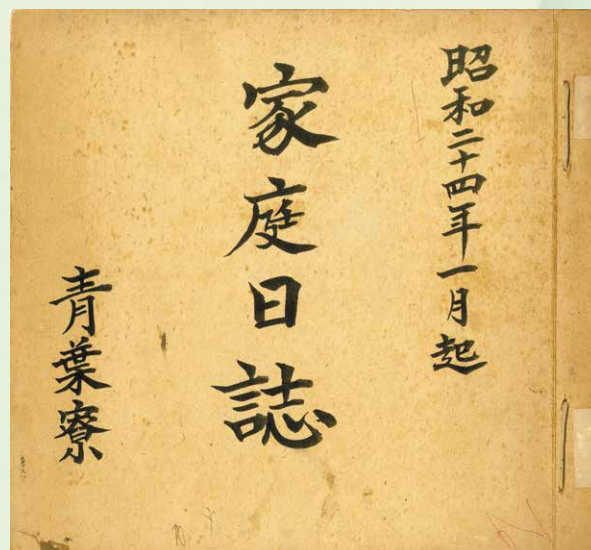 昭和二十四年一月起
家庭日誌
青葉寮